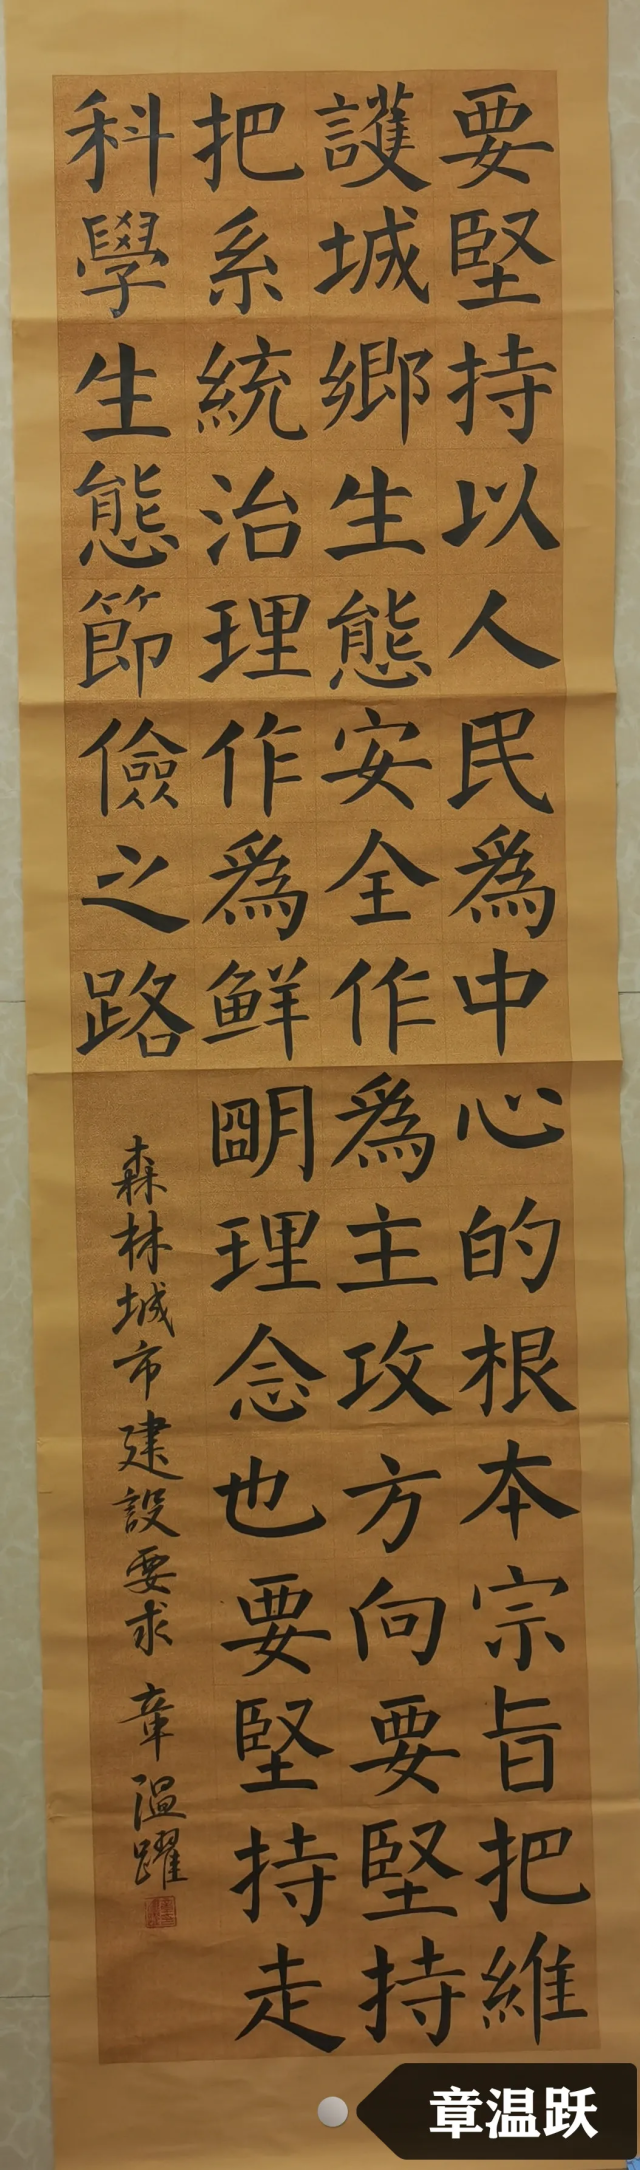 要堅持以人民為中心的根本宗旨把維
護城鄉生態安全作為主攻方向要堅持
把系統治理作為鲜明理念也要堅持走
科學生態節儉之路
森林城市建設要求 章温躍
章温跃